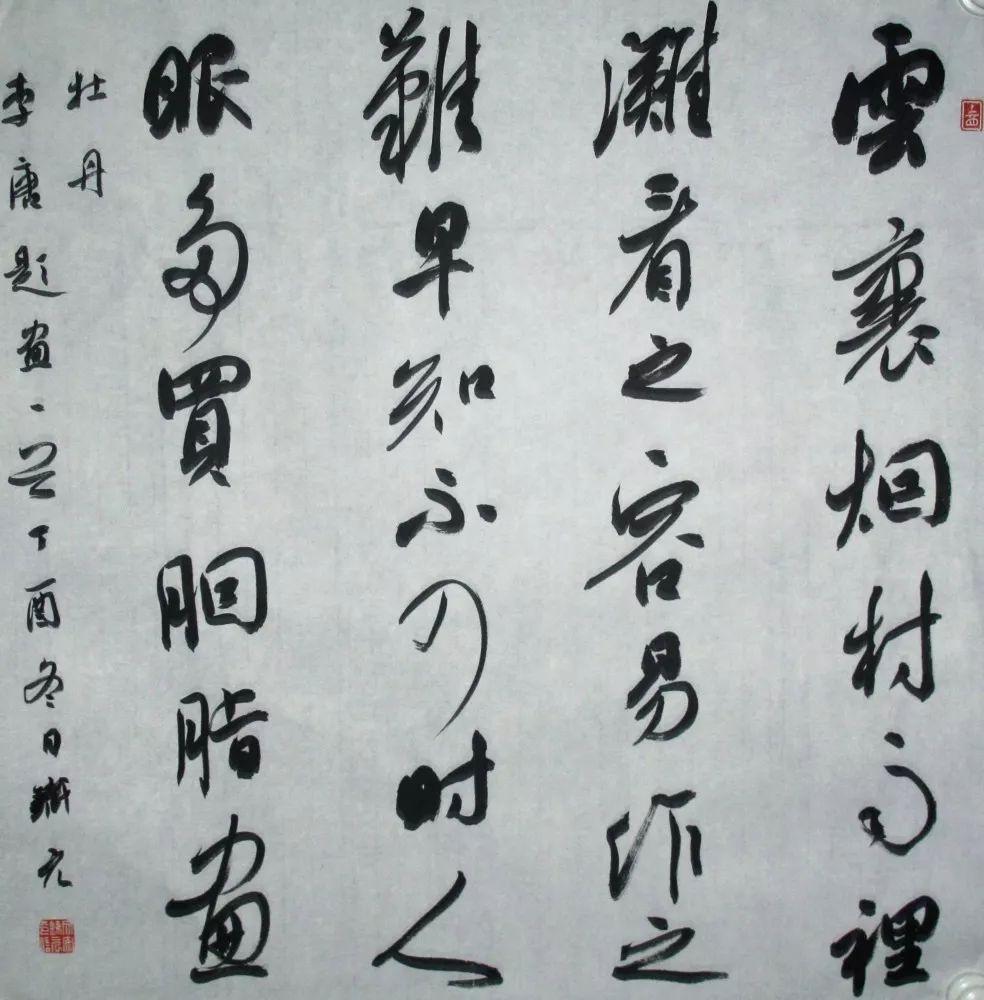 雲裏烟村雨裡
灘看之容易作之
難早知不入时人
眼多買胭脂畫
牡丹
李唐题畫一首丁酉冬日